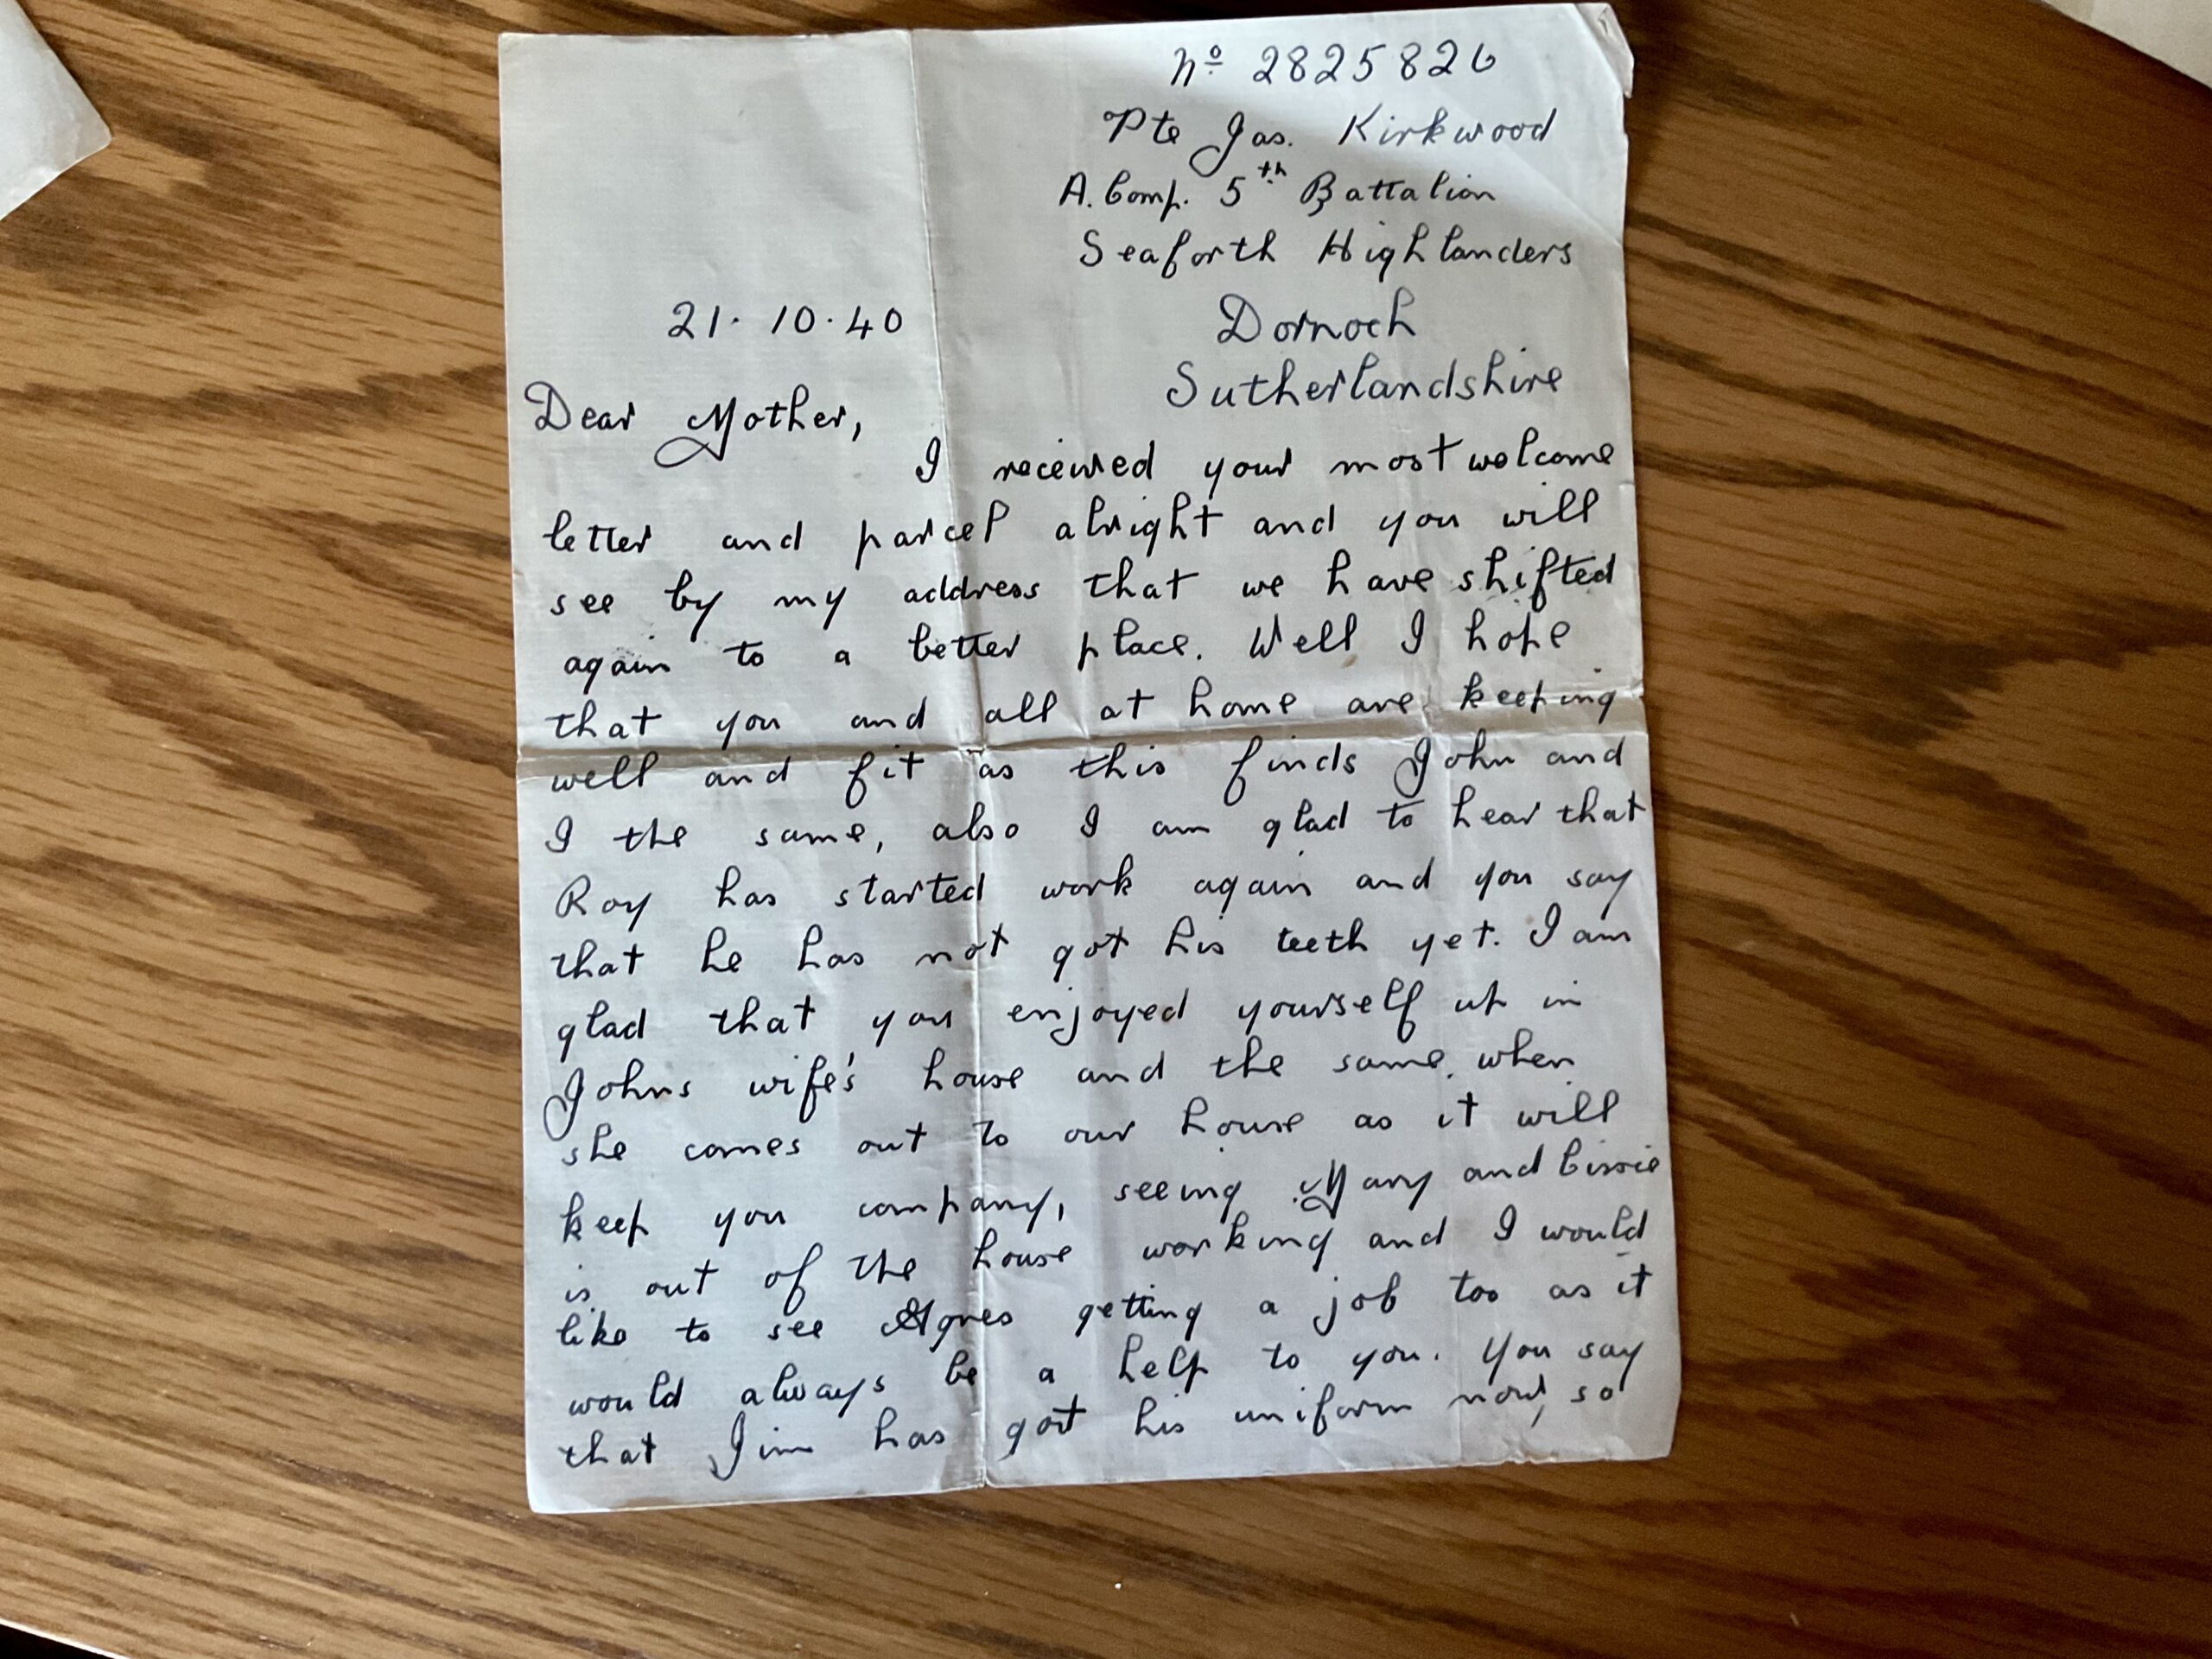 No 2825826
Pte Jas. Kirkwood
A. Comp. 5th Battalion
Seaforth Highlanders
21. 10. 40
Dornoch
Sutherlandshire
Dear Mother,
I received your most welcome
letter and parcel alright and you will
see by my address that we have shifted
again to a better place. Well I hope
that you and all at home are keeping
well and fit as this finds John and
I the same, also I am glad to hear that
Roy has started work again and you say
that he has not got his teeth yet. I am
glad that you enjoyed yourself up in
Johns wife's house and the same when
she comes out to our house as it will
keep you company, seeing Mary and Cissie
is out of the house working and I would
like to see Agnes getting a job too as it
would always be a help to you. You say
that Jim has got his uniform now, so